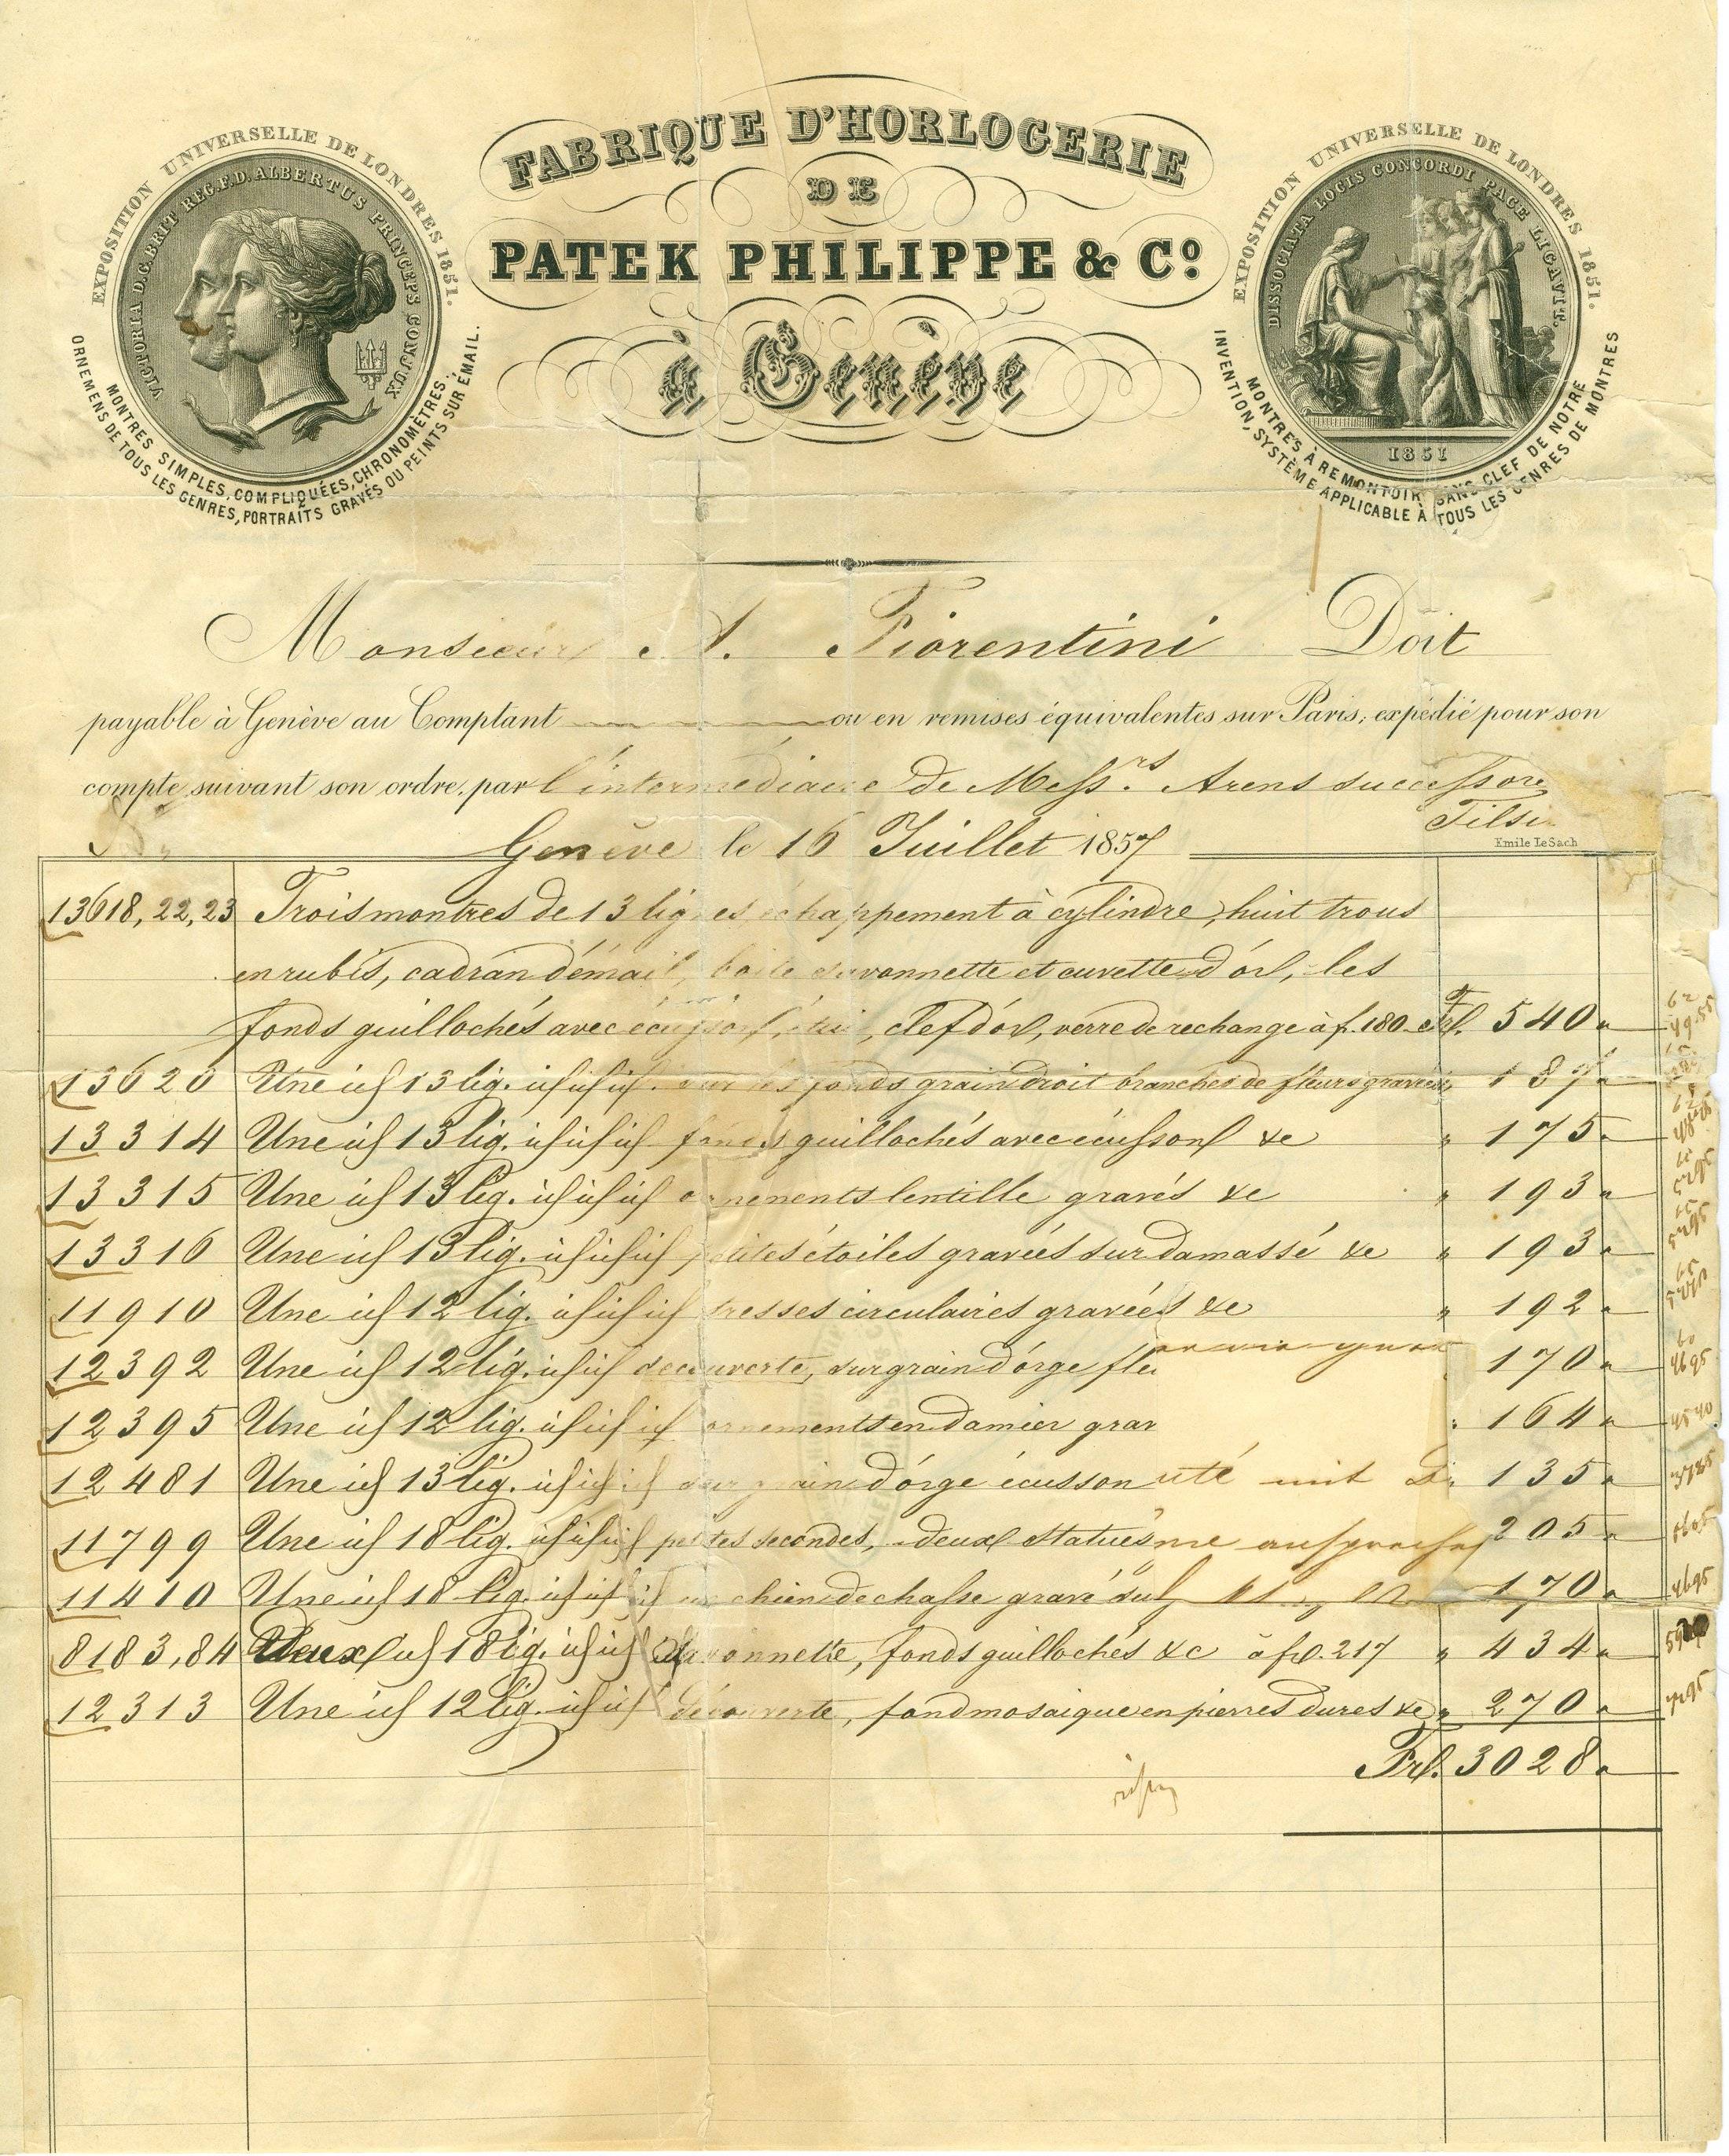 EXPOSITION UNIVERSELLE DE LONDRES 1851.
VICTORIA D.G.BRIT REG.F.D.ALBERTUS PRINCEPS CONJUX
MONTRES SIMPLES, COMPLIQUÉES, CHRONOMÈTRES.
ORNEMENS DE TOUS LES GENRES, PORTRAITS GRAVÉS OU PEINTS SUR ÉMAIL.
FABRIQUE D'HORLOGERIE
DE
PATEK PHILIPPE & Cº.
à Genève
EXPOSITION UNIVERSELLE DE LONDRES 1851.
DISSOCIATA LOCIS CONCORDI PACE LIGAVIT.
1851
MONTRES À REMONTOIR SANS CLEF DE NOTRE
INVENTION, SYSTÈME APPLICABLE À TOUS LES GENRES DE MONTRES
Monsieur A. Fiorentini Doit
payable à Genève au Comptant ou en remises équivalentes sur Paris, expédié pour son
compte suivant son ordre, par l'intermédiaire de Messrs. Arens successore
Tilsi
Genève le 16 Juillet 1857
Emile LeSach
13618, 22, 23 Trois montres de 13 lignes échappement à cylindre, huit trous
en rubis, cadran d'émail, boite savonnette et cuvette d'or, les
fonds guillochés avec écusson, étui, clef d'or, verre de rechange à f. 180 Fr. 540
13620 Une id 13 lig. id id id sur les fonds grain droit branches de fleurs gravées 187
13314 Une id 13 lig. id id id fonds guillochés avec écusson &c " 175
13315 Une id 13 lig. id id id ornements lentille gravés &c " 193
13316 Une id 13 lig. id id id petites étoiles gravées sur damassé &c " 193
11910 Une id 12 lig. id id id tresses circulaires gravées &c " 192
12392 Une id 12 lig. id id découverte, sur grain d'orge fleu 170
12395 Une id 12 lig. id id id ornements en damier grav " 164
12481 Une id 13 lig. id id id sur grain d'orge écusson 135
11799 Une id 18 lig. id id id petites secondes, deux statues 205
11410 Une id 18 lig. id id id un chien de chasse gravé sur 170
8183, 84 Deux id 18 lig. id id savonnette, fonds guillochés &c à f. 217 " 434
12313 Une id 12 lig. id id découverte, fond mosaique en pierres dures &c " 270
Fr. 3028